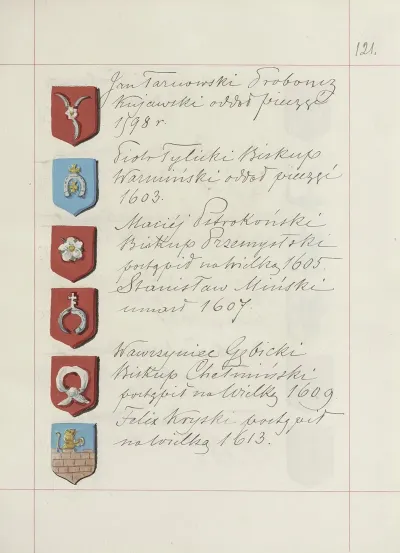 121.
Jan Tarnowski Proboszcz
Kujawski oddał pieczęć
1598 r.
Piotr Tylicki Biskup
Warmiński oddał pieczęć
1603.
Maciéj Pstrokoński
Biskup Przemyslski
postąpił na Wielką 1605.
Stanisław Miński
umarł 1607.
Wawrzyniec Gębicki
Biskup Chełmiński
postąpił na Wielką 1609
Felix Kryski postąpił
na Wielką 1613.